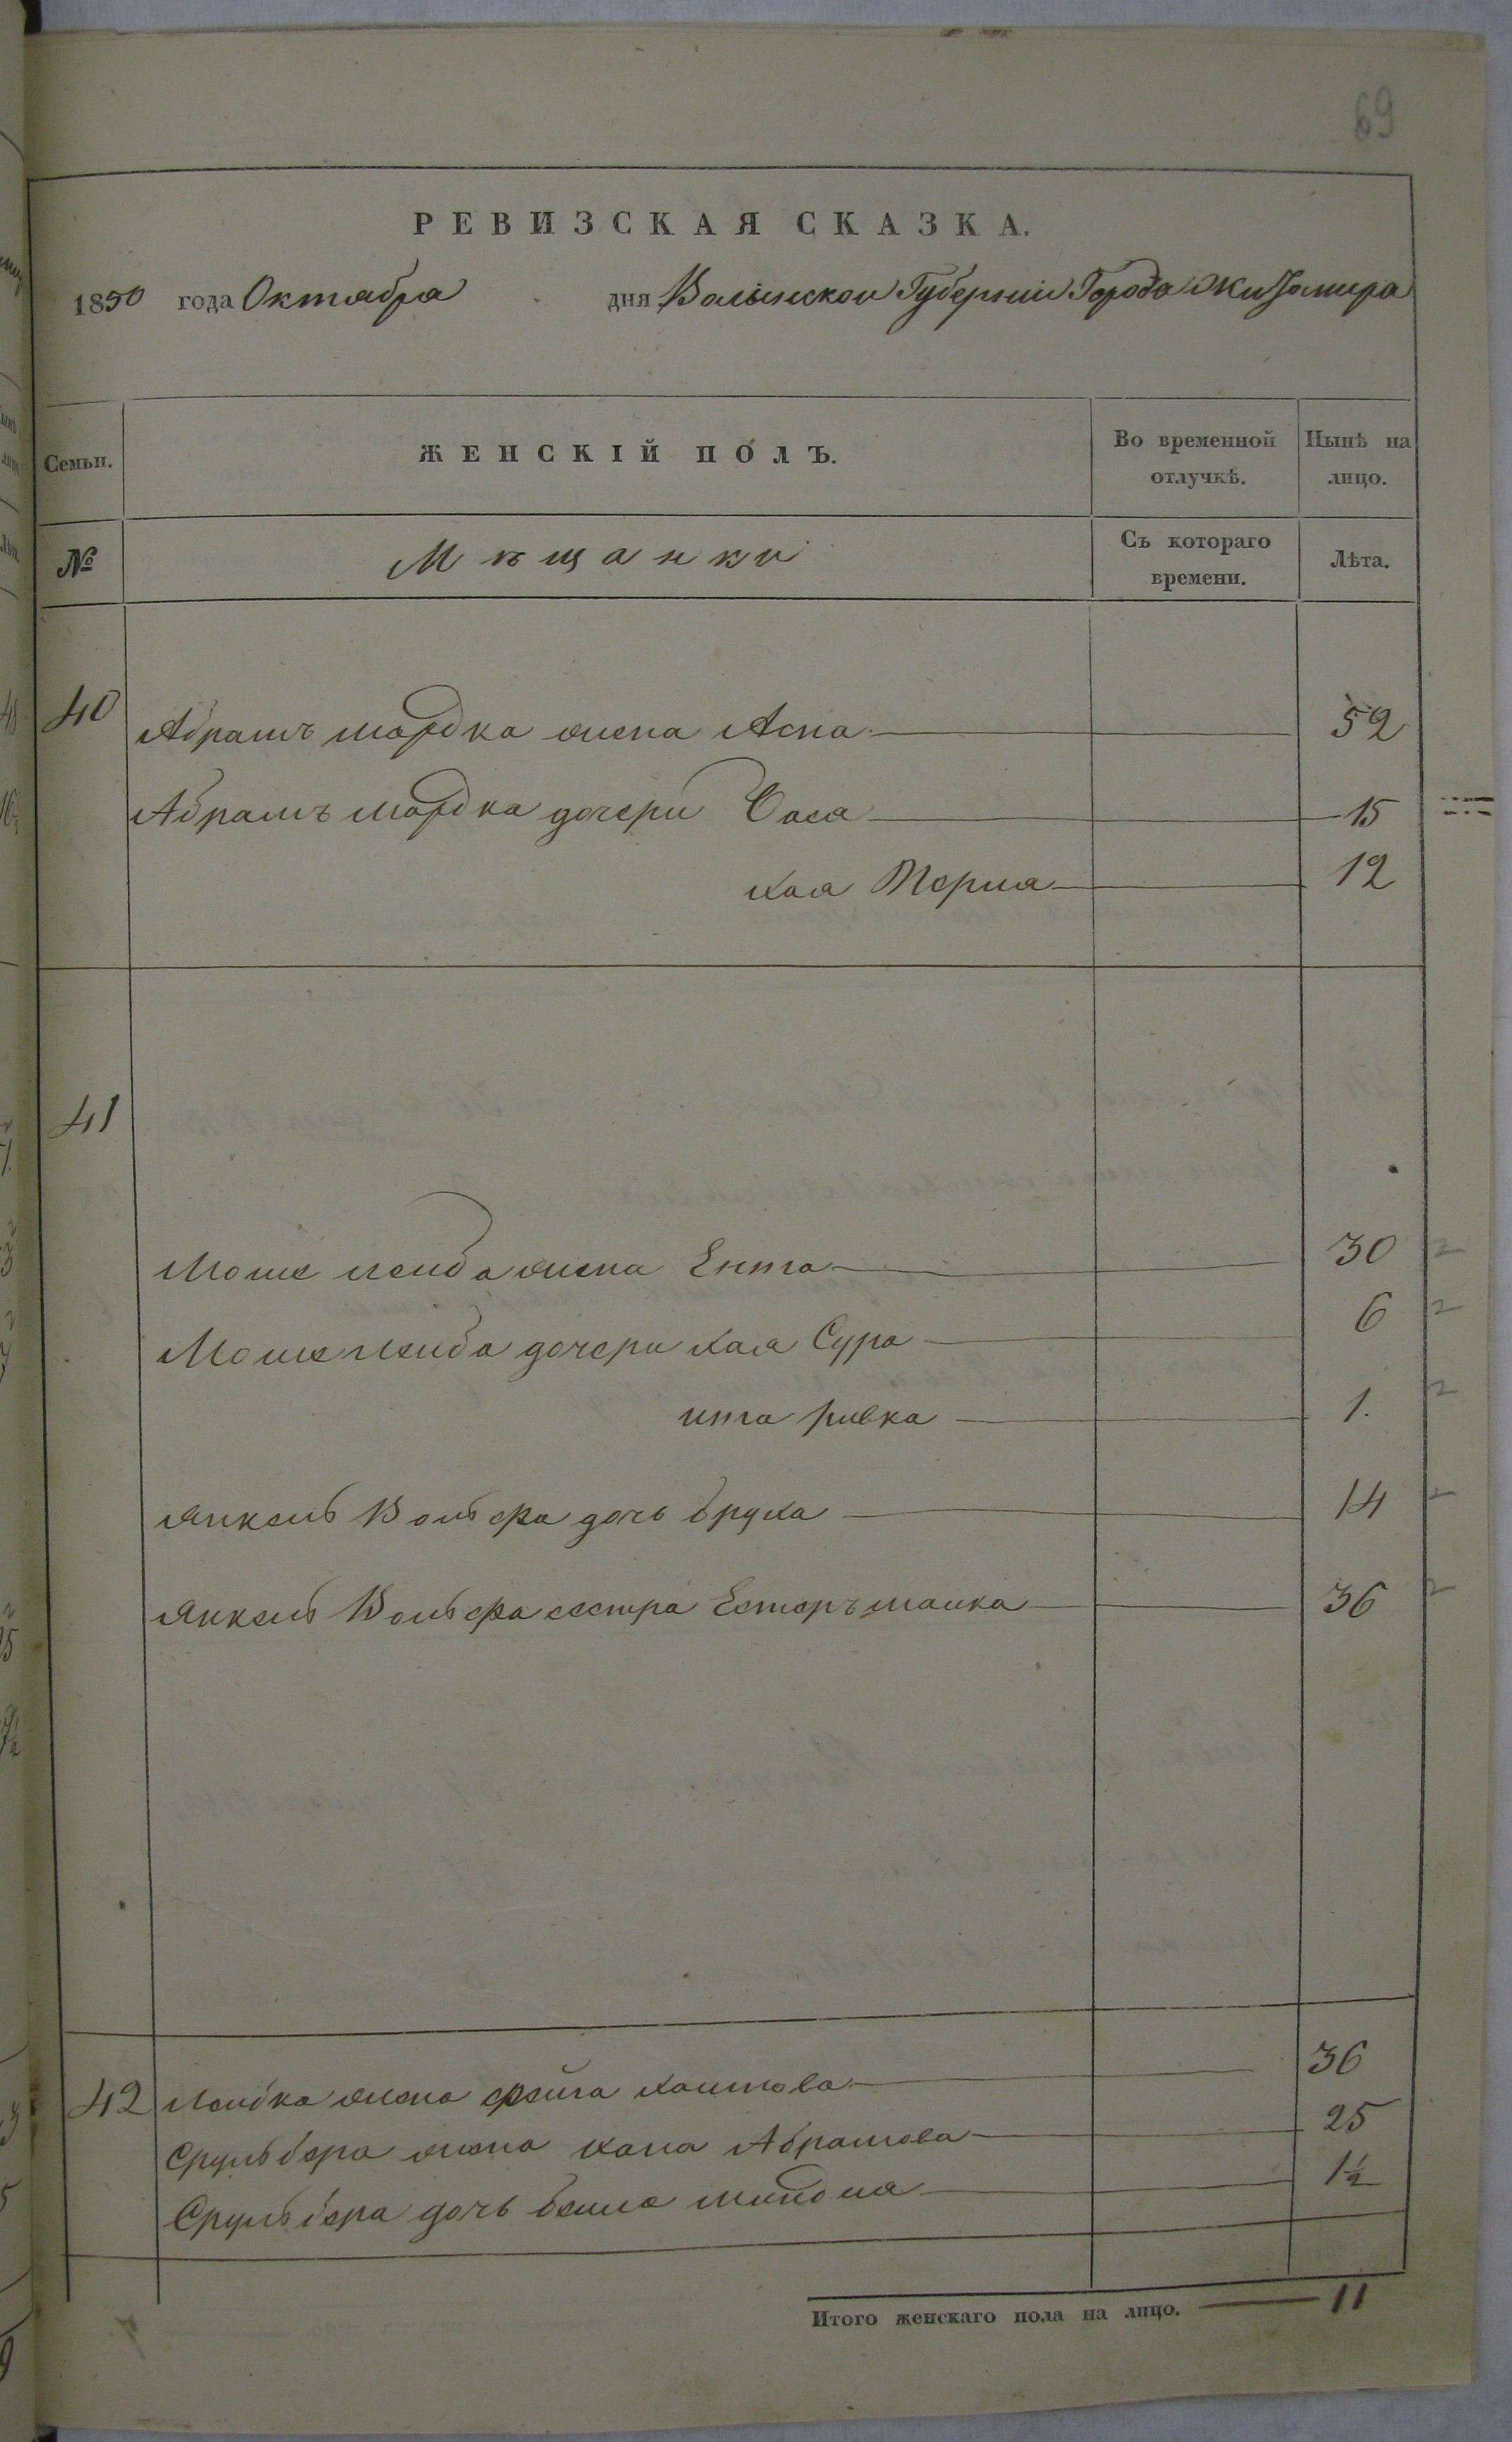 69
РЕВИЗСКАЯ СКАЗКА.
1850 года Октабра дня Волынской Губернии Города Житомира
Семьи. ЖЕНСКІЙ ПОЛЪ. Во временной отлучкѣ. Нынѣ на лицо.
№ Мѣщанки Съ котораго времени. Лѣта.
40 Абрамъ мордка жена Асна 52
Абрамъ мордка дочери Бася 15
хая Перла 12
41
Моше лейба жена Ента 30
Моше лейба дочери хая Сура 6
ита ривка 1.
Янкель Вольфа дочь бруха 14
Янкель Вольфа сестра Естеръ малка 36
42 Лейбка жена фейга хаимова 36
Срульбера жена хана Абрамова 25
Срульбера дочь бейла миндля 1½
Итого женскаго пола на лицо. 11